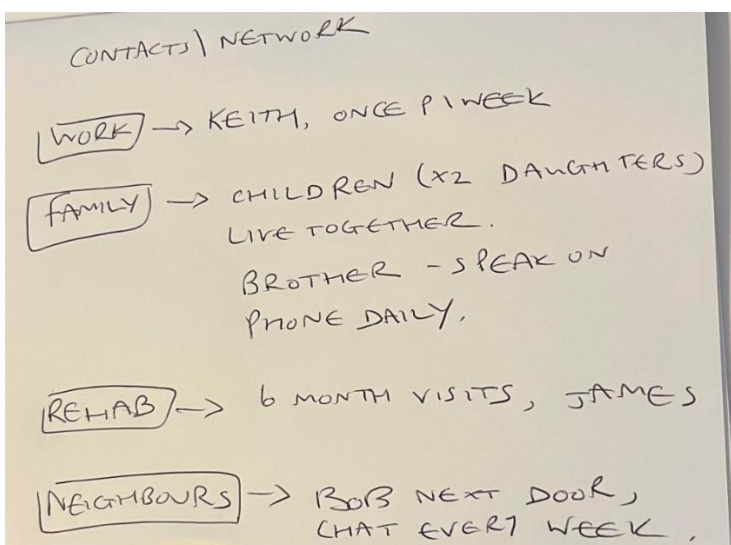 CONTACTS\ NETWORK
WORK → KEITH, ONCE P/WEEK
FAMILY → CHILDREN (x2 DAUGHTERS)
LIVE TOGETHER.
BROTHER - SPEAK ON
PHONE DAILY.
REHAB → 6 MONTH VISITS, JAMES
NEIGHBOURS → BOB NEXT DOOR,
CHAT EVERY WEEK.